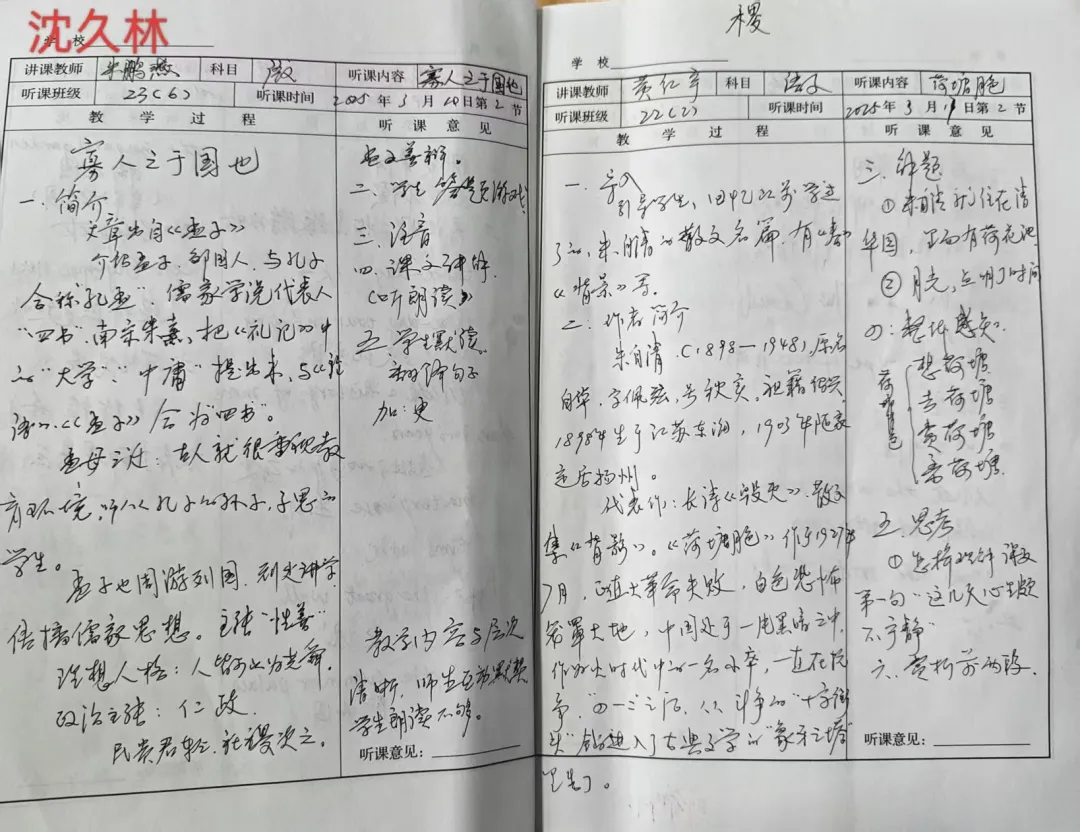 沈久林
学 校
讲课教师 朱鹏燕 科目 语文 听课内容 寡人之于国也
听课班级 23(6) 听课时间 2025年3月10日第2节
教 学 过 程 听 课 意 见
寡人之于国也
一、简介
文章出自《孟子》
介绍孟子,邹国人,与孔子
合称"孔孟",儒家学说代表人
"四书",南宋朱熹,把《礼记》中
的"大学"、"中庸"提出来,与《论
语》、《孟子》合为"四书"。
孟母三迁:古人就很重视教
育环境,孔子的孙子,子思的
学生。
孟子也周游列国,到处讲学
传播儒家思想。主张"性善"
理想人格:人皆可以为尧舜,
政治主张:仁政,
民贵君轻,社稷次之。
善辩。
二、学生答题游戏
三、注音
四、课文讲解
(听朗读)
五、学生默读
翻译句子
加:更
教学内容与层次
清晰,师生互动默契
学生朗读不够。
听课意见:
稷
学 校
讲课教师 黄红宇 科目 语文 听课内容 荷塘月色
听课班级 22(2) 听课时间 2025年3月 日第2节
教 学 过 程 听 课 意 见
一、导入
引导学生,回忆以前学过
了的,朱自清的散文名篇,有《春》
《背景》等.
二、作者简介
朱自清(1898—1948),原名
自华,字佩弦,号秋实,祖籍绍兴,
1898年生于江苏东海,1903年随家
定居扬州。
代表作:长诗《毁灭》,散文
集《背影》。《荷塘月色》作于1927年
7月,正值大革命失败,白色恐怖
笼罩大地,中国处于一片黑暗之中,
作为大时代中的一名小卒,一直在抗
争,"四一二"之后,从斗争的"十字街
头"钻进入了古典文学的"象牙之塔"
里去了。
三、解题
①朱自清就住在清
华园,正面有荷花池
②月光,点明了时间
四:整体感知
荷塘月色
想荷塘
去荷塘
赏荷塘
离荷塘
五、思考
①怎样理解课文
第一句"这几天心里颇
不宁静"
六、赏析前两段.
听课意见: